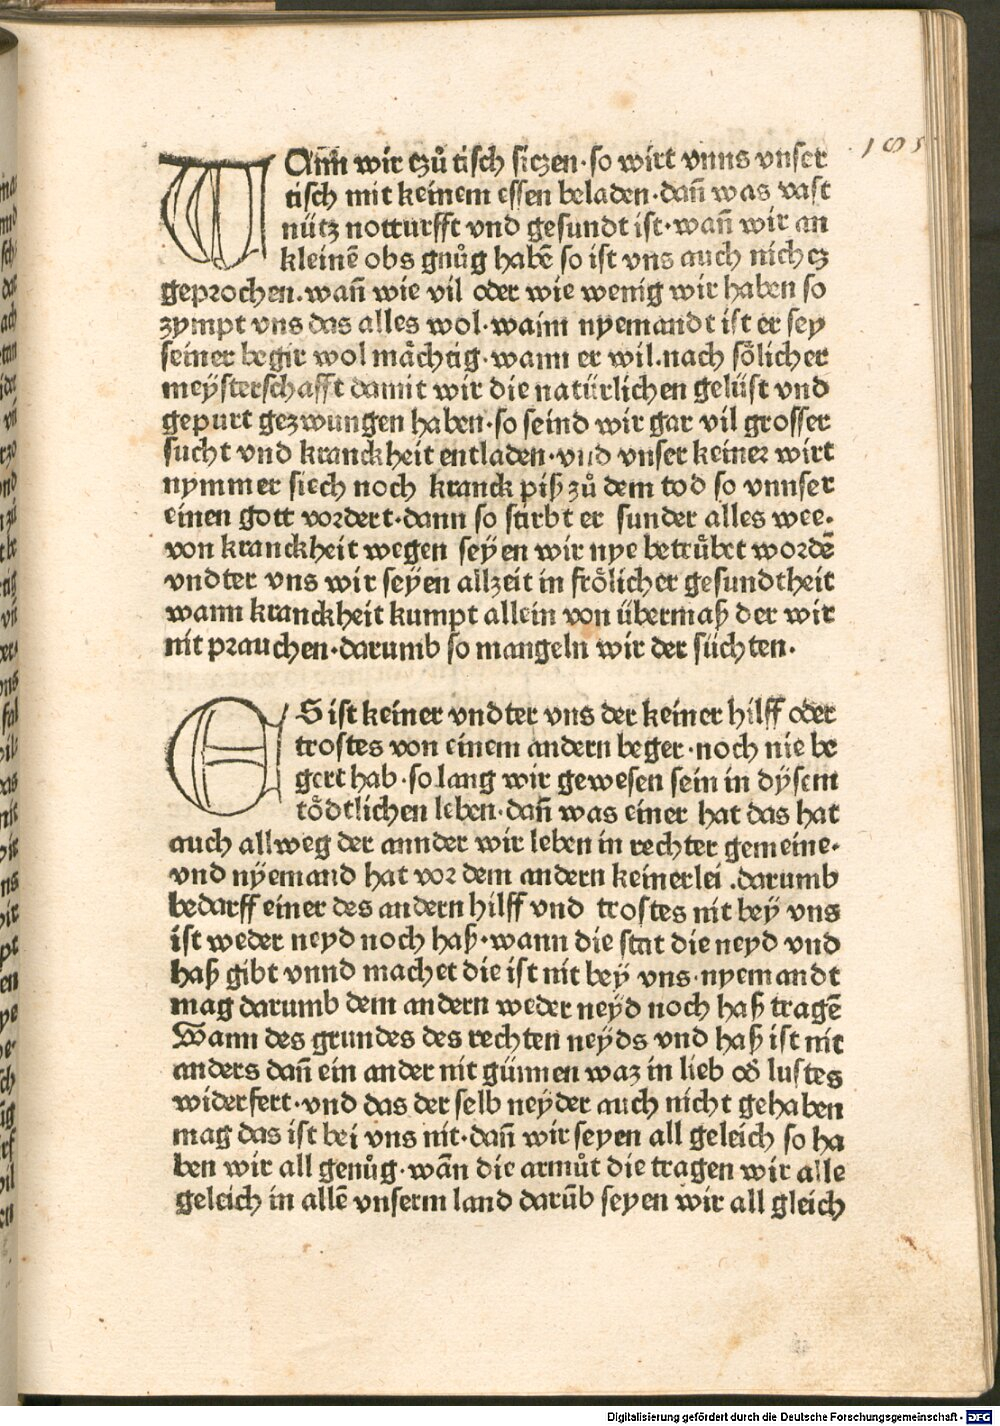 105
WAnn wir tzů tisch siczen·so wirt vnns vnser
tisch mit keinem essen beladen·dañ was vast
nütz notturfft vnd gesundt ist·wañ wir an
kleinē obs gnůg habē so ist vns auch nichcz
geprochen.wañ wie vil oder wie wenig wir haben so
zympt vns das alles wol·wann nyemandt ist er sey
seiner begir wol mächtig·wann er wil.nach sölicher
meÿsterschafft damit wir die natürlichen gelüst vnd
gepurt gezwungen haben·so seind wir gar vil grosser
sucht vnd kranckheit entladen·vnd vnser keiner wirt
nymmer siech noch kranck piß zů dem tod so vnnser
einen gott vordert·dann so stirbt er sunder alles wee.
von kranckheit wegen seyen wir nye betrůbet wordē
vndter vns wir seyen allzeit in frölicher gesundtheit
wann kranckheit kumpt allein von übermaß der wir
nit prauchen·darumb so mangeln wir der süchten.
ES ist keiner vndter vns der keiner hilff oder
trostes von einem andern beger·noch nie be
gert hab·so lang wir gewesen sein in dÿsem
tödtlichen leben·dañ was einer hat das hat
auch allweg der annder wir leben in rechter gemeine·
vnd nÿemand hat vor dem andern keinerlei .darumb
bedarff einer des andern hilff vnd trostes nit beÿ vns
ist weder neyd noch haß·wann die stat die neyd vnd
haß gibt vnnd machet die ist nit beÿ vns·nyemandt
mag darumb dem andern weder neÿd noch haß tragē
Wann des grundes des rechten neÿds vnd haß ist nit
anders dañ ein ander nit günnen waz in lieb od̓ lustes
widerfert·vnd das der selb neyder auch nicht gehaben
mag das ist bei vns nit·dañ wir seyen all geleich so ha
ben wir all genůg·wān die armůt die tragen wir alle
geleich in allē vnserm land darūb seyen wir all gleich
Digitalisierung gefördert durch die Deutsche Forschungsgemeinschaft - DFG